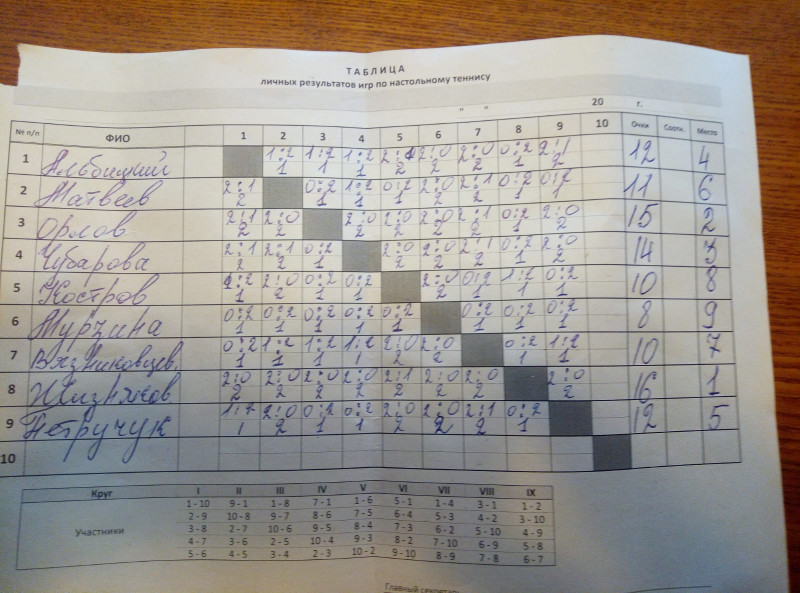 ТАБЛИЦА
личных результатов игр по настольному теннису
" " 20 г.
№ п/п ФИО 1 2 3 4 5 6 7 8 9 10 Очки Соотн. Место
1:2 1:2 1:2 2:1 2:0 2:0 0:2 2:1
1 Альбицкий 1 1 1 2 2 2 1 2 12 4
2:1 0:2 1:2 0:2 2:0 2:1 0:2 0:2
2 Матвеев 2 1 1 1 2 2 1 1 11 6
2:1 2:0 2:0 2:0 2:0 2:1 0:2 2:0
3 Орлов 2 2 2 2 2 2 1 2 15 2
2:1 2:1 0:2 2:0 2:0 2:1 0:2 2:0
4 Чубарова 2 2 1 2 2 2 1 2 14 3
1:2 2:0 0:2 0:2 2:0 0:2 1:2 0:2
5 Костров 1 2 1 1 2 1 1 1 10 8
0:2 0:2 0:2 0:2 0:2 0:2 0:2 0:2
6 Мурзина 1 1 1 1 1 1 1 1 8 9
0:2 1:2 1:2 1:2 2:0 2:0 0:2 1:2
7 Вязниковцев. 1 1 1 1 2 2 1 1 10 7
2:0 2:0 2:0 2:0 2:1 2:0 2:0 2:0
8 Жизняков 2 2 2 2 2 2 2 2 16 1
1:2 2:0 0:2 0:2 2:0 2:0 2:1 0:2
9 Петручук 1 2 1 1 2 2 2 1 12 5
10
Круг I II III IV V VI VII VIII IX
Участники
1 - 10 9 - 1 1 - 8 7 - 1 1 - 6 5 - 1 1 - 4 3 - 1 1 - 2
2 - 9 10 - 8 9 - 7 8 - 6 7 - 5 6 - 4 5 - 3 4 - 2 3 - 10
3 - 8 2 - 7 10 - 6 9 - 5 8 - 4 7 - 3 6 - 2 5 - 10 4 - 9
4 - 7 3 - 6 2 - 5 10 - 4 9 - 3 8 - 2 7 - 10 6 - 9 5 - 8
5 - 6 4 - 5 3 - 4 2 - 3 10 - 2 9 - 10 8 - 9 7 - 8 6 - 7
Главный секретарь